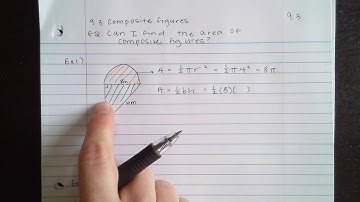 9.3 Composite figures
9.3
EQ: Can I find the area of
composite figures?
Ex1)
A = ½πr² = ½π4² = 8π
8m
A = ½bh = ½(8)( )
10m